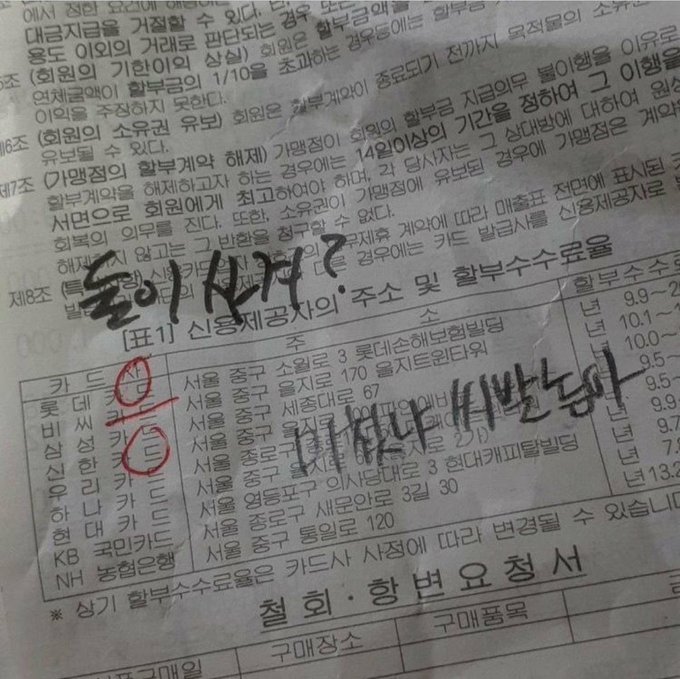 에서 정한 요건에 해당하는
대금지급을 거절할 수 있다. 단,
용도 이외의 거래로 판단되는 경우 또는
(회원의 기한이익 상실) 회원은 할부금액을
연체금액이 할부금의 1/10을 초과하는 경우에는 할부금
이익을 주장하지 못한다.
제6조 (회원의 소유권 유보) 회원은 할부계약이 종료되기 전까지 목적물의 소유권
유보될 수 있다.
제7조 (가맹점의 할부계약 해제) 가맹점이 회원의 할부금 지급의무 불이행을 이유로
할부계약을 해제하고자 하는 경우에는 14일이상의 기간을 정하여 그 이행을
서면으로 회원에게 최고하여야 하며, 각 당사자는 그 상대방에 대하여 원상
회복의 의무를 진다. 또한, 소유권이 가맹점에 유보된 경우에 가맹점은 계약을
해제하지 않고는 그 반환을 청구할 수 없다.
제8조 계약에 따라 매출표 전면에 표시된
경우에는 카드 발급사를 신용제공자로
둘이 사겨?
[표1] 신용제공자의 주소 및 할부수수료율
카드 주 소 할부수수료
롯데카 서울 중구 소월로 3 롯데손해보험빌딩 년 9.9~
비씨카 서울 중구 을지로 170 을지트윈타워 년 10.1~
삼성카드 서울 중구 세종대로 67 년 10.0~
신한 드 서울 중구 을지로 9.5~
우리카드 서울 종로구 9.5
하나카드 서울 중구 을지로 9.9
현대카드 서울 영등포구 의사당대로 3 현대캐피탈빌딩
KB 국민카드 서울 종로구 새문안로 3길 30
NH 농협은행 서울 중구 통일로 120 년 13.2
응
미쳤냐 씨발놈아
※ 상기 할부수수료율은 카드사 사정에 따라 변경될 수 있습니다
철회·항변요청서
구매일 구매장소 구매품목